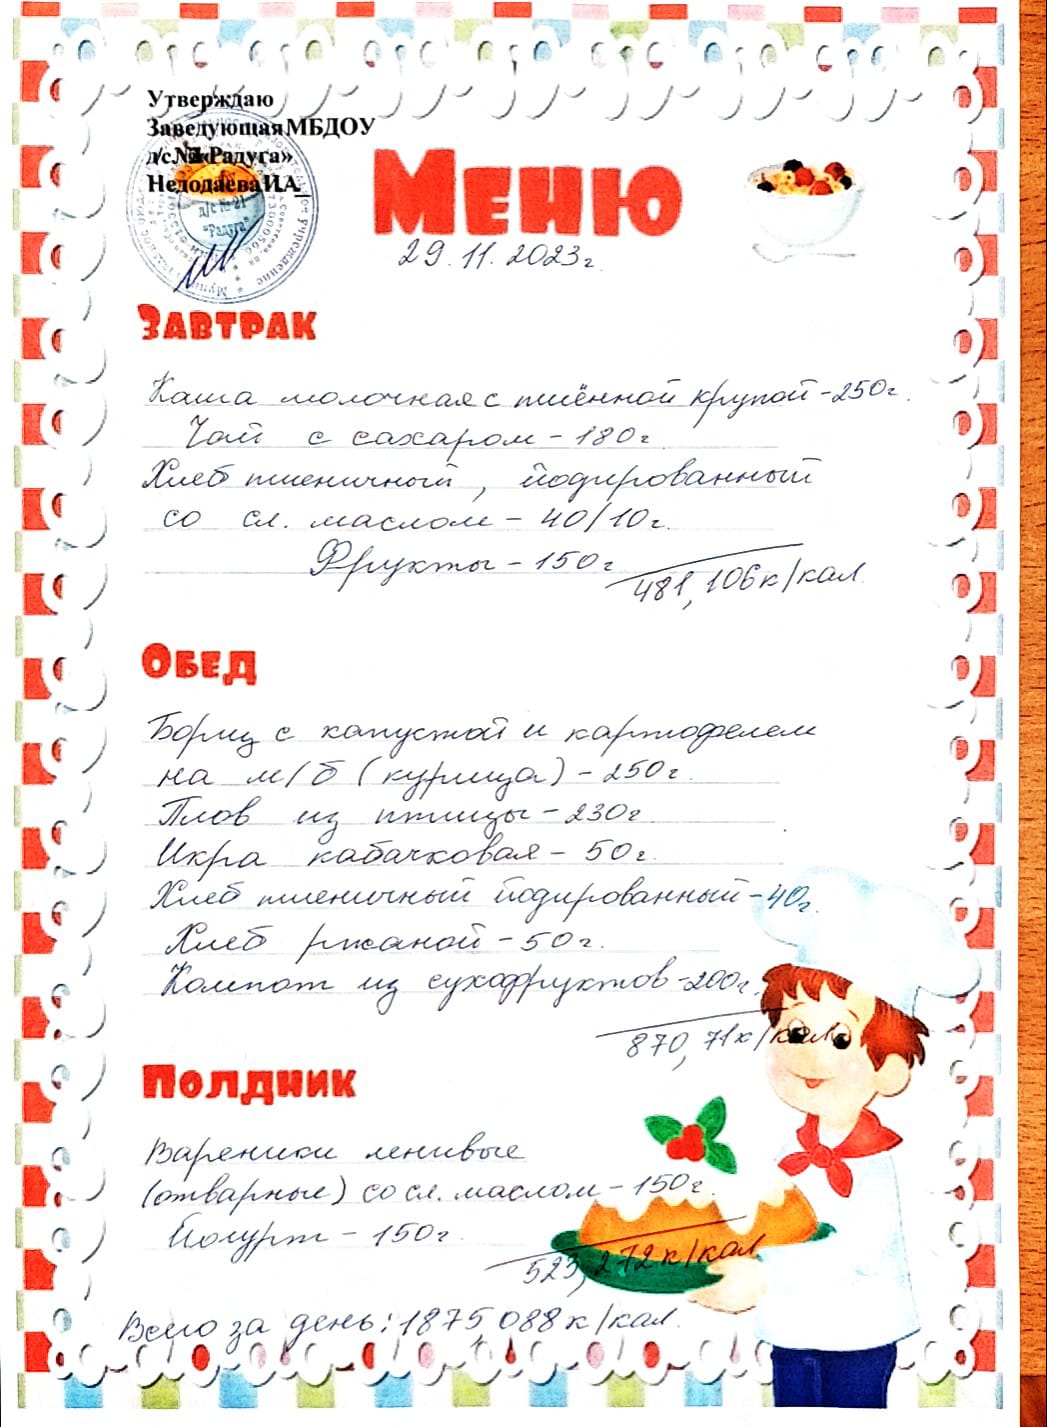 Утверждаю
Заведующая МБДОУ
д/с № «Радуга»
Недодаева И.А_
д/с № 21
"Радуга"
Меню
29.11.2023г.
Завтрак
Каша молочная с пшённой крупой - 250г.
Чай с сахаром - 180г.
Хлеб пшеничный, йодированный
со сл. маслом - 40/10г.
Фрукты - 150г
481,106к/кал.
Обед
Борщ с капустой и картофелем
на м/б (курица) - 250г.
Плов из птицы - 230г.
Икра кабачковая - 50г.
Хлеб пшеничный йодированный - 40г.
Хлеб ржаной - 50г.
Компот из сухофруктов - 200г.
870,71к/кал.
Полдник
Вареники ленивые
(отварные) со сл. маслом - 150г.
Йогурт - 150г.
523,272к/кал
Всего за день: 1875,088к/кал.